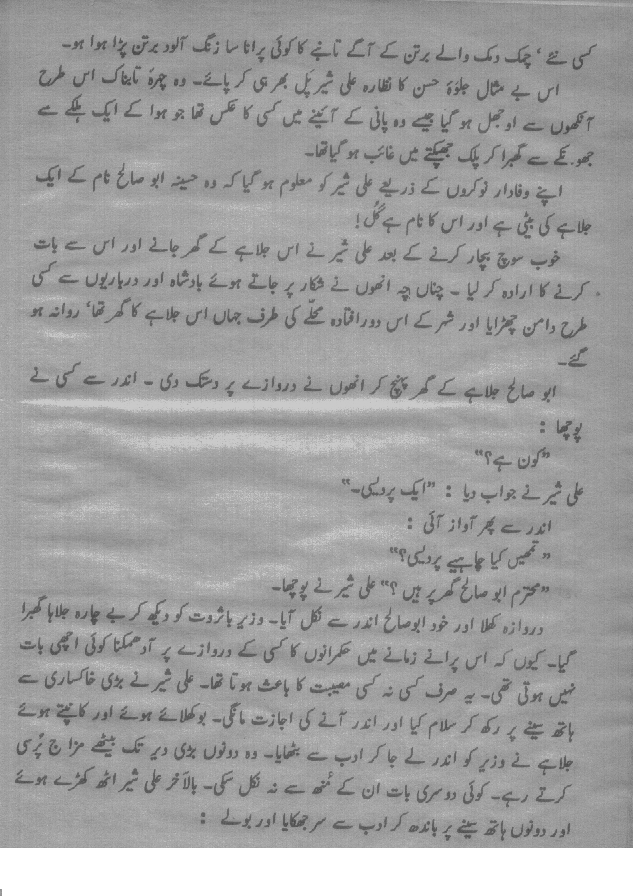 کسی نئے، چمک دمک والے برتن کے آگے تانبے کا کوئی پرانا سا زنگ آلود برتن پڑا ہوا ہو۔
اس بے مثال جلوۂ حسن کا نظارہ علی شیر پل بھر ہی کر پائے۔ وہ چہرۂ تابناک اس طرح
آنکھوں سے اوجھل ہو گیا جیسے وہ پانی کے آئینے میں کسی کا عکس تھا جو ہوا کے ایک ہلکے سے
جھونکے سے گھبرا کر پلک جھپکتے میں غائب ہو گیا تھا۔
اپنے وفادار نوکروں کے ذریعے علی شیر کو معلوم ہو گیا کہ وہ حسینہ ابو صالح نام کے ایک
جلاہے کی بیٹی ہے اور اس کا نام ہے گُل!
خوب سوچ بچار کرنے کے بعد علی شیر نے اس جلاہے کے گھر جانے اور اس سے بات
کرنے کا ارادہ کر لیا ۔ چناں چہ انھوں نے شکار پر جاتے ہوئے بادشاہ اور درباریوں سے کسی
طرح دامن چھڑایا اور شہر کے اس دور افتادہ محلّے کی طرف جہاں اس جلاہے کا گھر تھا، روانہ ہو
گئے۔
ابو صالح جلاہے کے گھر پہنچ کر انھوں نے دروازے پر دستک دی ۔ اندر سے کسی نے
پوچھا :
”کون ہے؟“
علی شیر نے جواب دیا : ”ایک پردیسی۔“
اندر سے پھر آواز آئی :
”تمھیں کیا چاہیے پردیسی؟“
”محترم ابو صالح گھر پر ہیں ؟“ علی شیر نے پوچھا۔
دروازہ کھلا اور خود ابو صالح اندر سے نکل آیا۔ وزیر باثروت کو دیکھ کر بے چارہ جلاہا گھبرا
گیا۔ کیوں کہ اس پرانے زمانے میں حکمرانوں کا کسی کے دروازے پر آدھمکنا کوئی اچھی بات
نہیں ہوتی تھی۔ یہ صرف کسی نہ کسی مصیبت کا باعث ہوتا تھا۔ علی شیر نے بڑی خاکساری سے
ہاتھ سینے پر رکھ کر سلام کیا اور اندر آنے کی اجازت مانگی۔ بوکھلائے ہوئے اور کانپتے ہوئے
جلاہے نے وزیر کو اندر لے جا کر ادب سے بٹھایا۔ وہ دونوں بڑی دیر تک بیٹھے مزاج پُرسی
کرتے رہے۔ کوئی دوسری بات ان کے مُنھ سے نہ نکل سکی۔ بالآخر علی شیر اٹھ کھڑے ہوئے
اور دونوں ہاتھ سینے پر باندھ کر ادب سے سر جھکایا اور بولے :